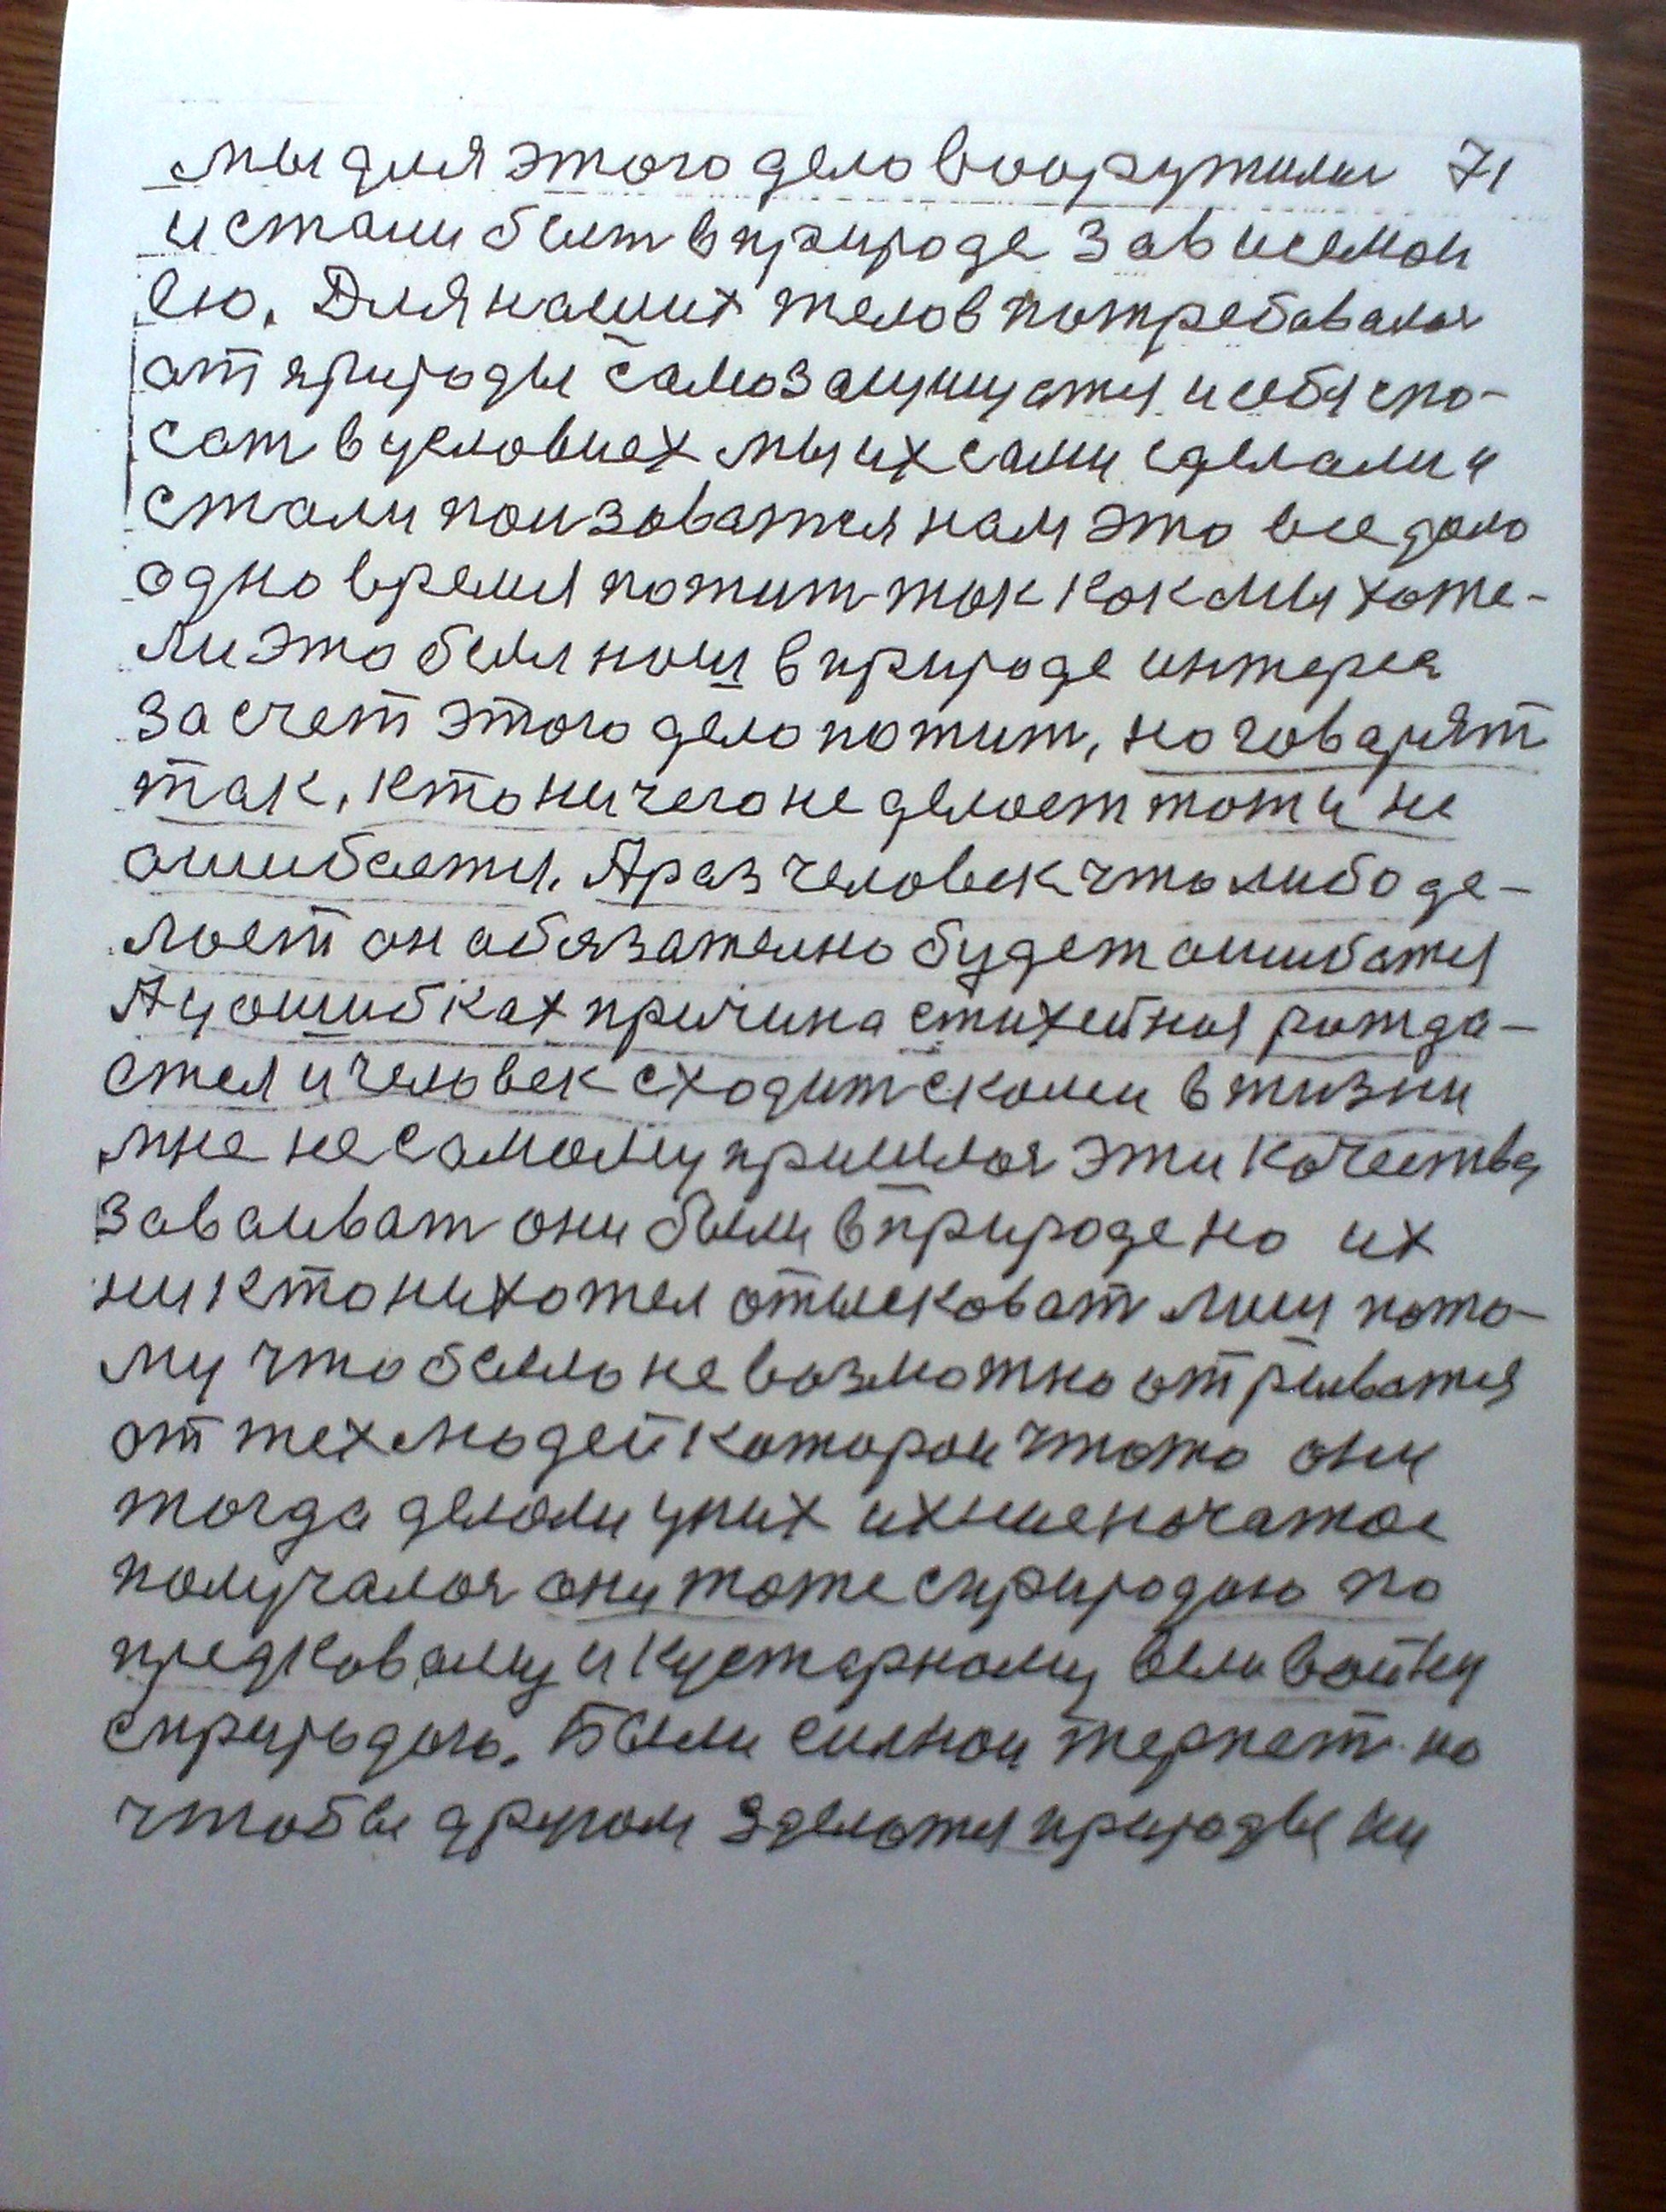 мы для этого дело вооружилис 71
и стали быт в природе зависемои
ею. Для наших телов потребавалос
от природы самозащищятся и себя спо-
сат в условиех мы их сами сделали и
стали ползоватся нам это все дало
одно время пожит так как мы хоте-
ли это был наш в природе интерес
за счет этого дело пожит, но говарят
так, кто ничего не делает тот и не
ошибается. А раз человек что либо де-
лает он обязателно будет ошибатся
А у ошибках причина стихейная рожда-
ется и человек сходит скоми в жизни
мне не самому пришлос эти качества
заваиват они были в природе но их
ни кто ни хотел отыскават лиш пото-
му что было не возможно отрыватся
от тех людей каторои что то они
тогда делали у них ихние начатое
получалос они тоже сприродою по
предковаму и кустарному вели войну
сприродою. Были силнои терпет но
чтобы другом зделатся природы ни